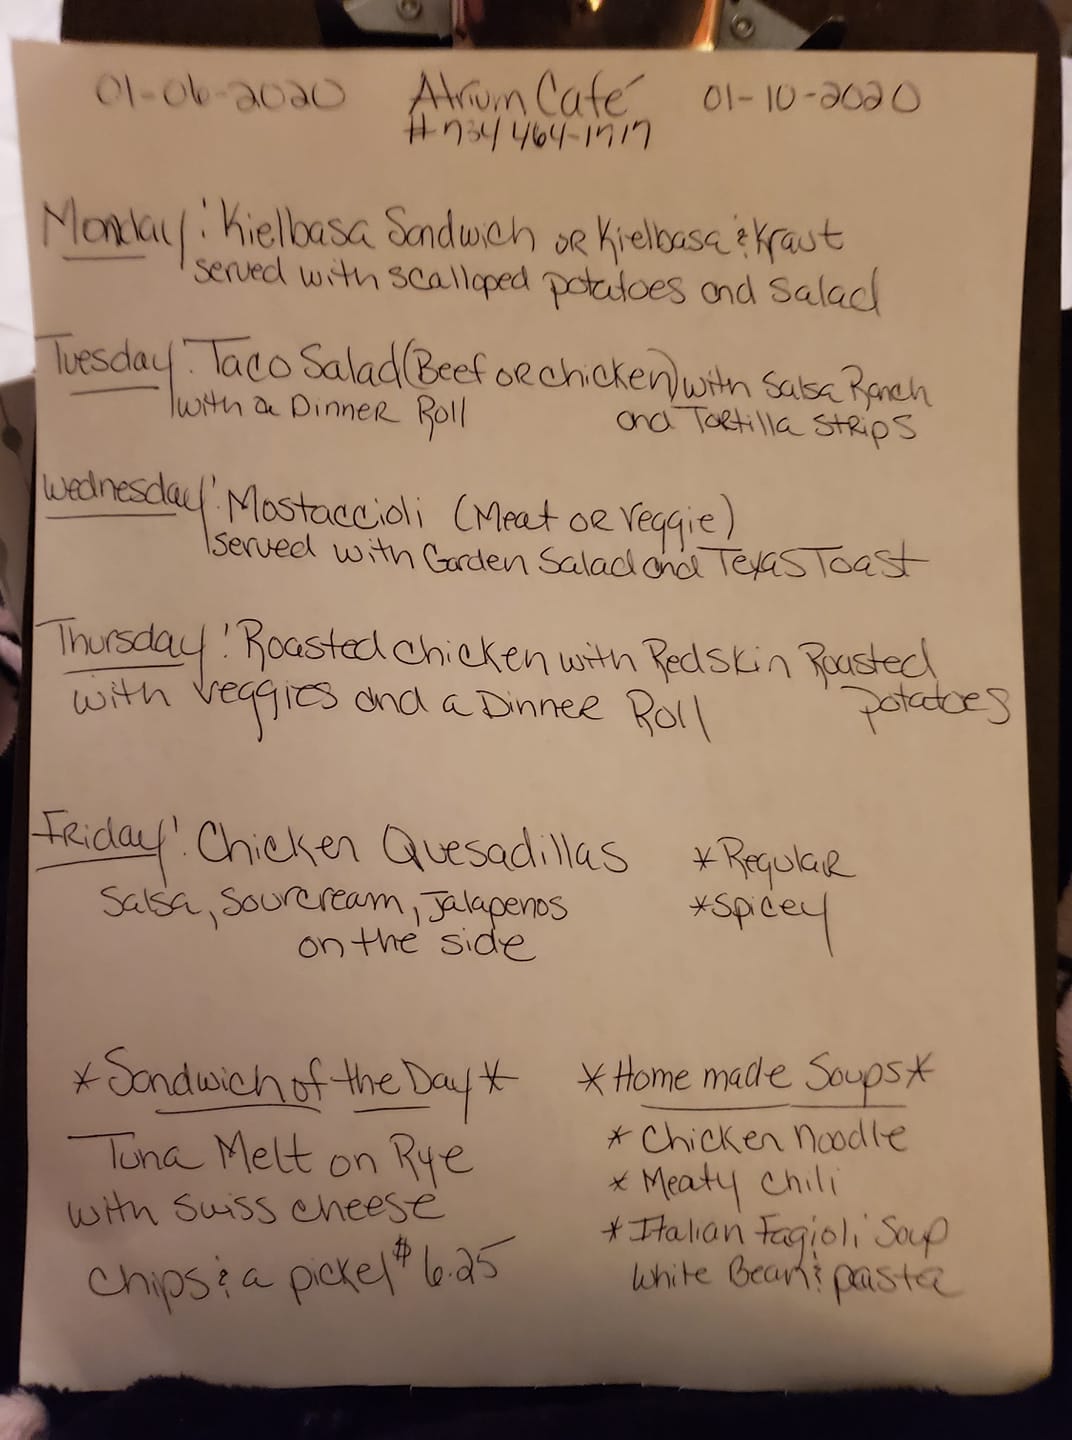 01-06-2020 Atrium Café 01-10-2020
# 734 464-1717
Monday: Kielbasa Sandwich or Kielbasa & Kraut
served with scalloped potatoes and salad
Tuesday: Taco Salad (Beef or chicken) with Salsa Ranch
with a Dinner Roll and Tortilla Strips
Wednesday: Mostaccioli (Meat or Veggie)
served with Garden Salad and Texas Toast
Thursday: Roasted chicken with Redskin Roasted
with veggies and a Dinner Roll potatoes
Friday: Chicken Quesadillas *Regular
Salsa, Sourcream, Jalapenos *Spicey
on the side
*Sandwich of the Day* *Home made Soups*
Tuna Melt on Rye * Chicken Noodle
with swiss cheese * Meaty Chili
chips & a pickel $6.25 * Italian Fagioli Soup
White Bean & pasta